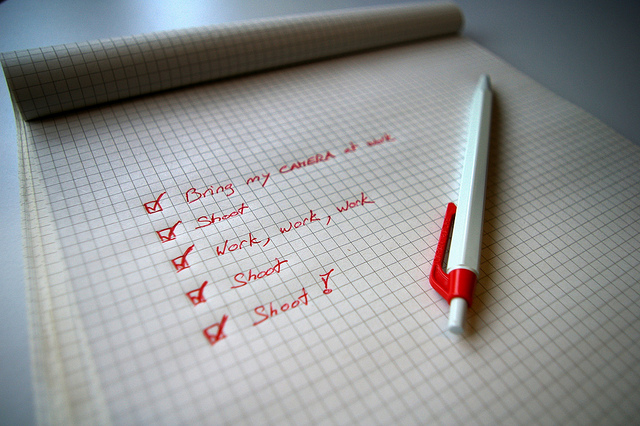 Bring my CAMERA at work
Shoot
Work, work, work
Shoot
Shoot!